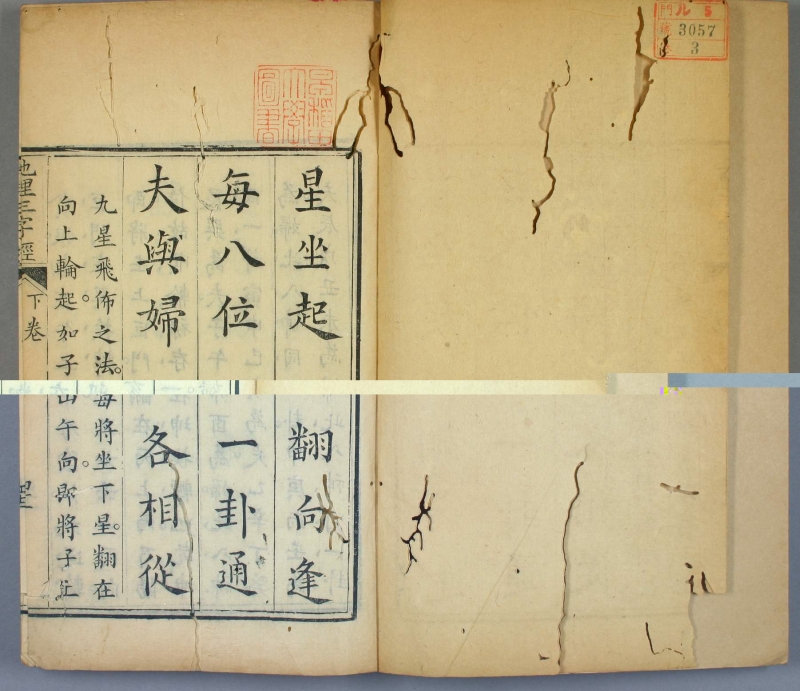 星坐起 翻向逢
每八位 一卦通
夫與婦 各相從
九星飛佈之法。每將坐下星。翻在
向上輪起。如子山午向。卽將子上
地理三字經 下卷
3057
3